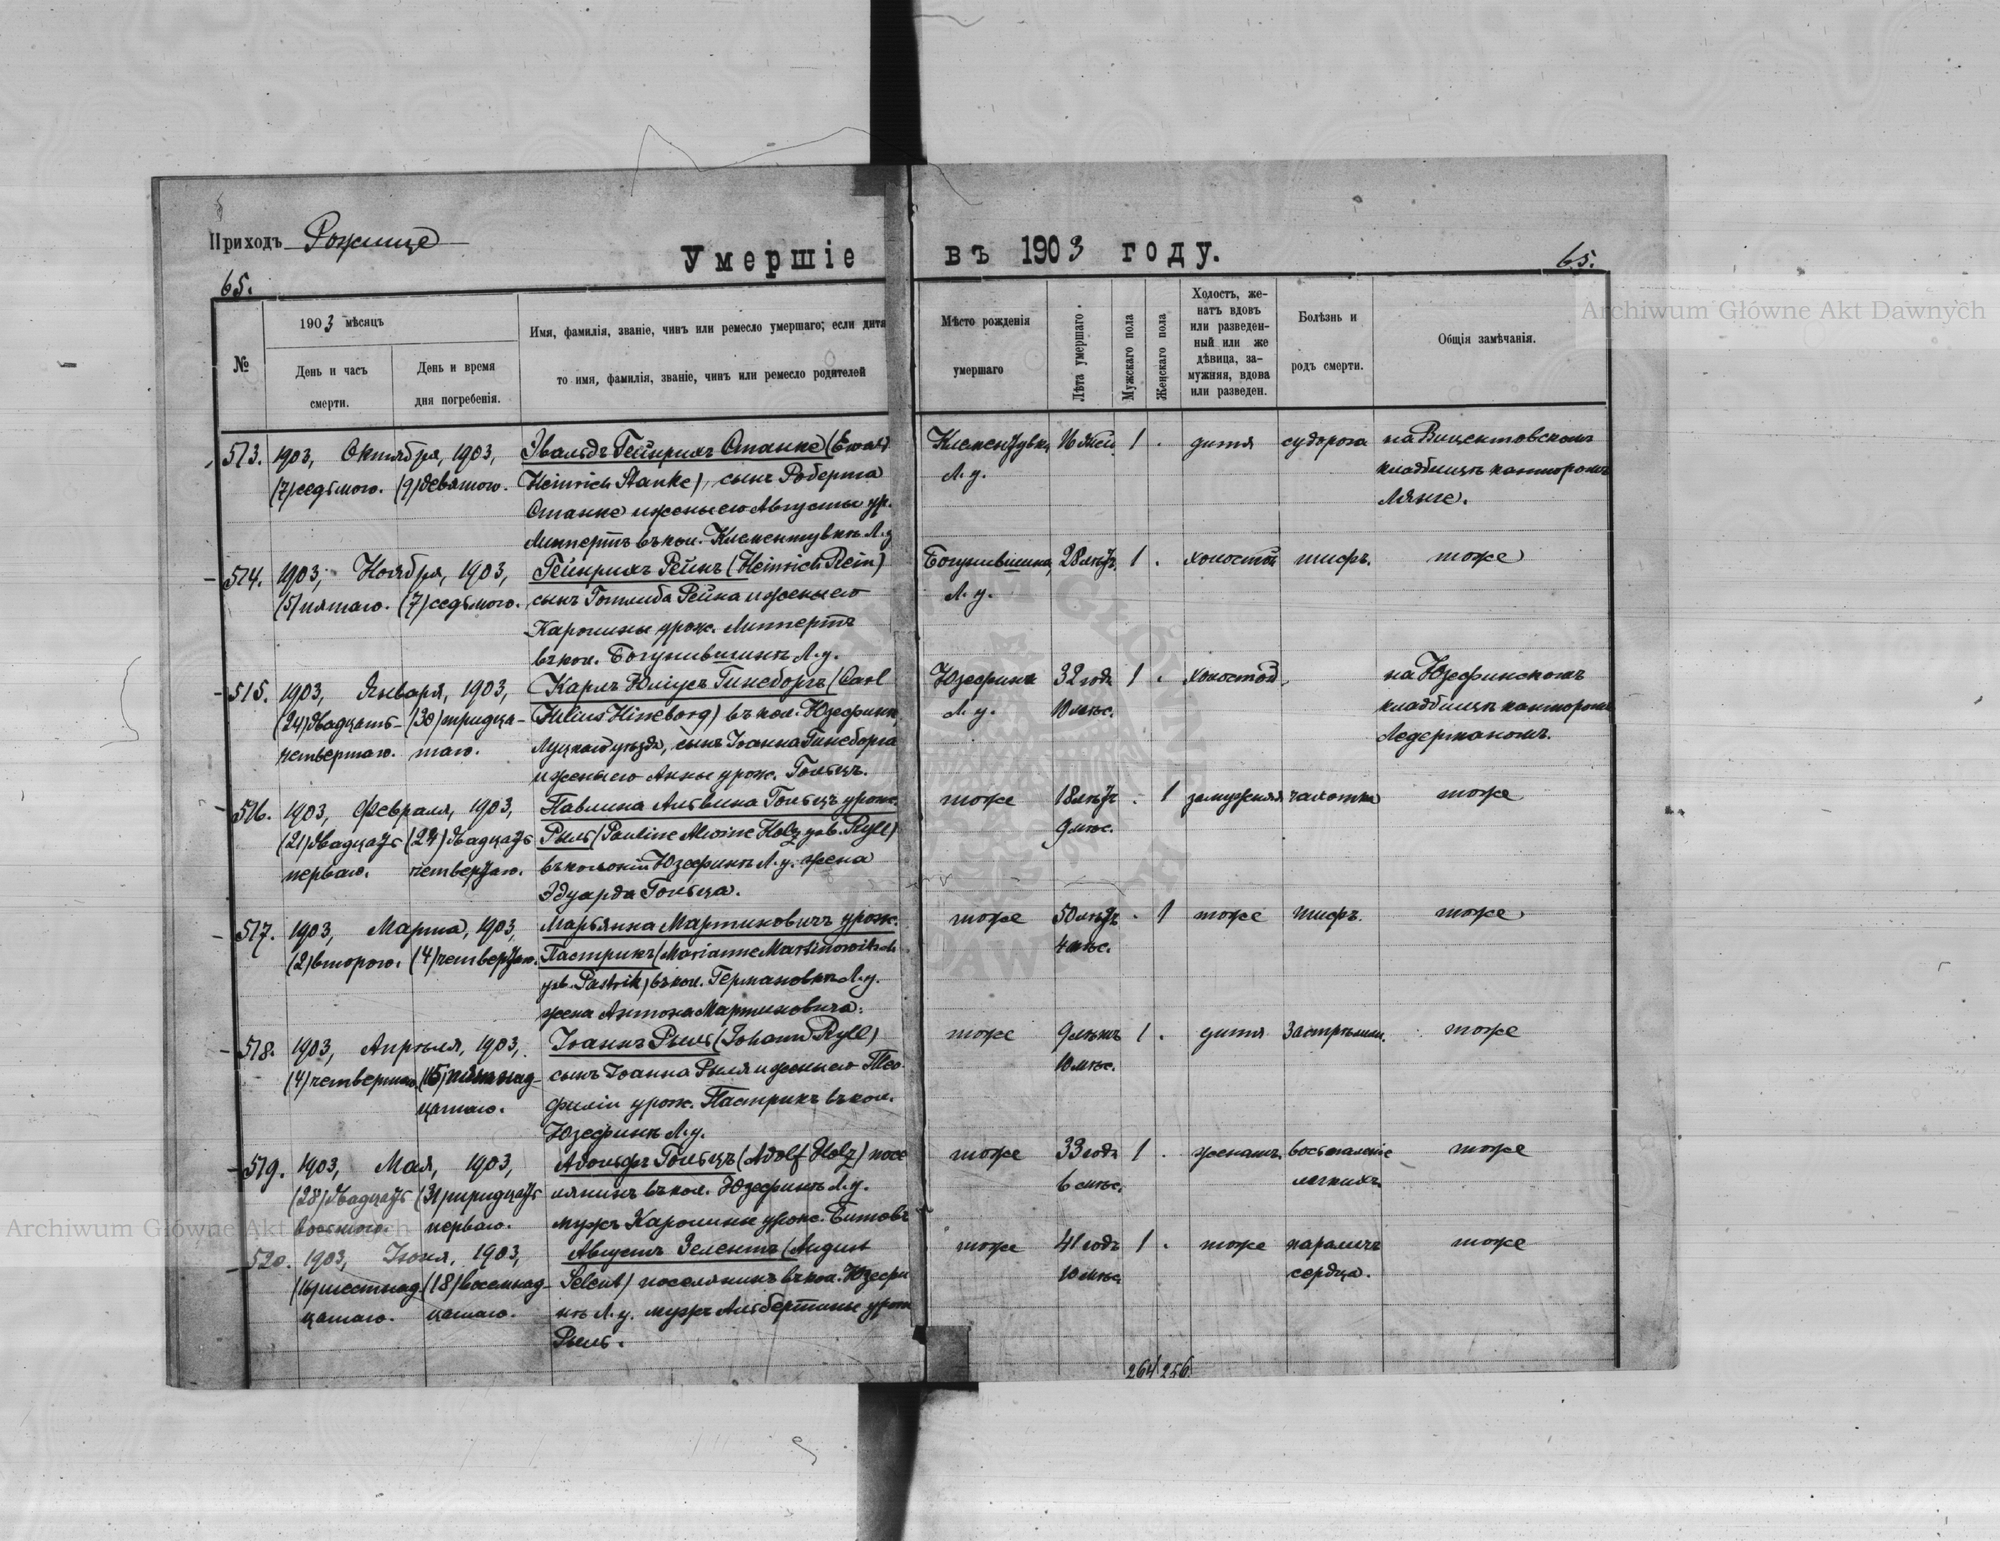 Приходъ Рожище
Умершіе въ 1903 году.
65.
65.
Archiwum Główne Akt Dawnych
№
1903 мѣсяцъ
День и часъ
смерти.
День и время
дня погребенія.
Имя, фамилія, званіе, чинъ или ремесло умершаго; если дитя
то имя, фамилія, званіе, чинъ или ремесло родителей
Мѣсто рожденія
умершаго
Лѣта умершаго.
Мужскаго пола
Женскаго пола
Холостъ, же-
натъ вдовъ
или разведен-
ный или же
дѣвица, за-
мужняя, вдова
или разведен.
Болѣзнь и
родъ смерти.
Общія замѣчанія.
513. 1903, Октября, 1903, Эвальдъ Гейнрихъ Станке (Ewald 1 . дитя судорога на Вицентовскомъ
(7) седьмого. (9) девятого. Heinrich Stanke), сынъ Роберта Л. у. кладбищѣ канторомъ
Станке и жены его Августы ур. Лянге.
Липпертъ въ кол. Клементувкѣ Л. у
514. 1903, Ноября, 1903, Гейнрихъ Рейнъ (Heinrich Rein) 28 лѣтъ 1 . холостой тифъ. тоже
(5) пятаго. (7) седьмого. сынъ Готлиба Рейна и жены его Л. у.
Каролины урож. Липпертъ
въ кол. Л. у.
515. 1903, Января, 1903, Карлъ Юліусъ Гинсборгъ (Carl Юзефинъ 32 года 1 . холостой на Юзефинскомъ
(24) двадцать (30) тридца- Julius Hinsborg) въ кол. Юзефинѣ, Л. у. 10 мѣс. кладбищѣ канторомъ
четвертаго. таго. Луцкаго уѣзда, сынъ Іоанна Гинсборга Ледерманомъ.
и жены его Анны урож. Гольцъ.
516. 1903, Февраля, 1903, Павлина Альвина Гольцъ урож. тоже 18 лѣтъ . 1 замужняя чахотка тоже
(21) двадцать (24) двадцать Рыль (Pauline Alwine Holz geb. Ryll) 9 мѣс.
перваго. четвертаго. въ колоніи Юзефинѣ Л. у. жена
Эдуарда Гольца.
517. 1903, Марта, 1903, Марьянна Мартиновичъ урож. тоже 50 лѣтъ . 1 тоже тифъ. тоже
(2) второго. (4) четвертаго. Пастрикъ (Marianne Martinowitsch 4 мѣс.
geb. Pastrik) въ кол. Германовкѣ Л. у.
жена Антона Мартиновича.
518. 1903, Апрѣля, 1903, Іоаннъ Рыль (Johann Ryll) тоже 9 лѣтъ 1 . дитя тоже
(4) четвертаго (15) пятнад- сынъ Іоанна Рыля и жены его Тео- 10 мѣс.
цатаго. филіи урож. Пастрикъ въ кол.
Юзефинѣ Л. у.
519. 1903, Мая, 1903, Адольфъ Гольцъ (Adolf Holz) посе тоже 33 года 1 . женатъ. воспаленіе тоже
(28) двадцать (31) тридцать лянинъ въ кол. Юзефинѣ Л. у. 6 мѣс. легкихъ.
восьмого. перваго. мужъ Каролины урож.
Archiwum Główne Akt Dawnych
520. 1903, Іюня, 1903, Августъ Зелентъ (August тоже 41 годъ 1 . тоже параличъ тоже
(16) шестнад (18) восемнад- Selent) поселянинъ въ кол. Юзефи 10 мѣс. сердца.
цатаго. цатаго. нѣ Л. у. мужъ Альбертины урож
Рыль.
264 256